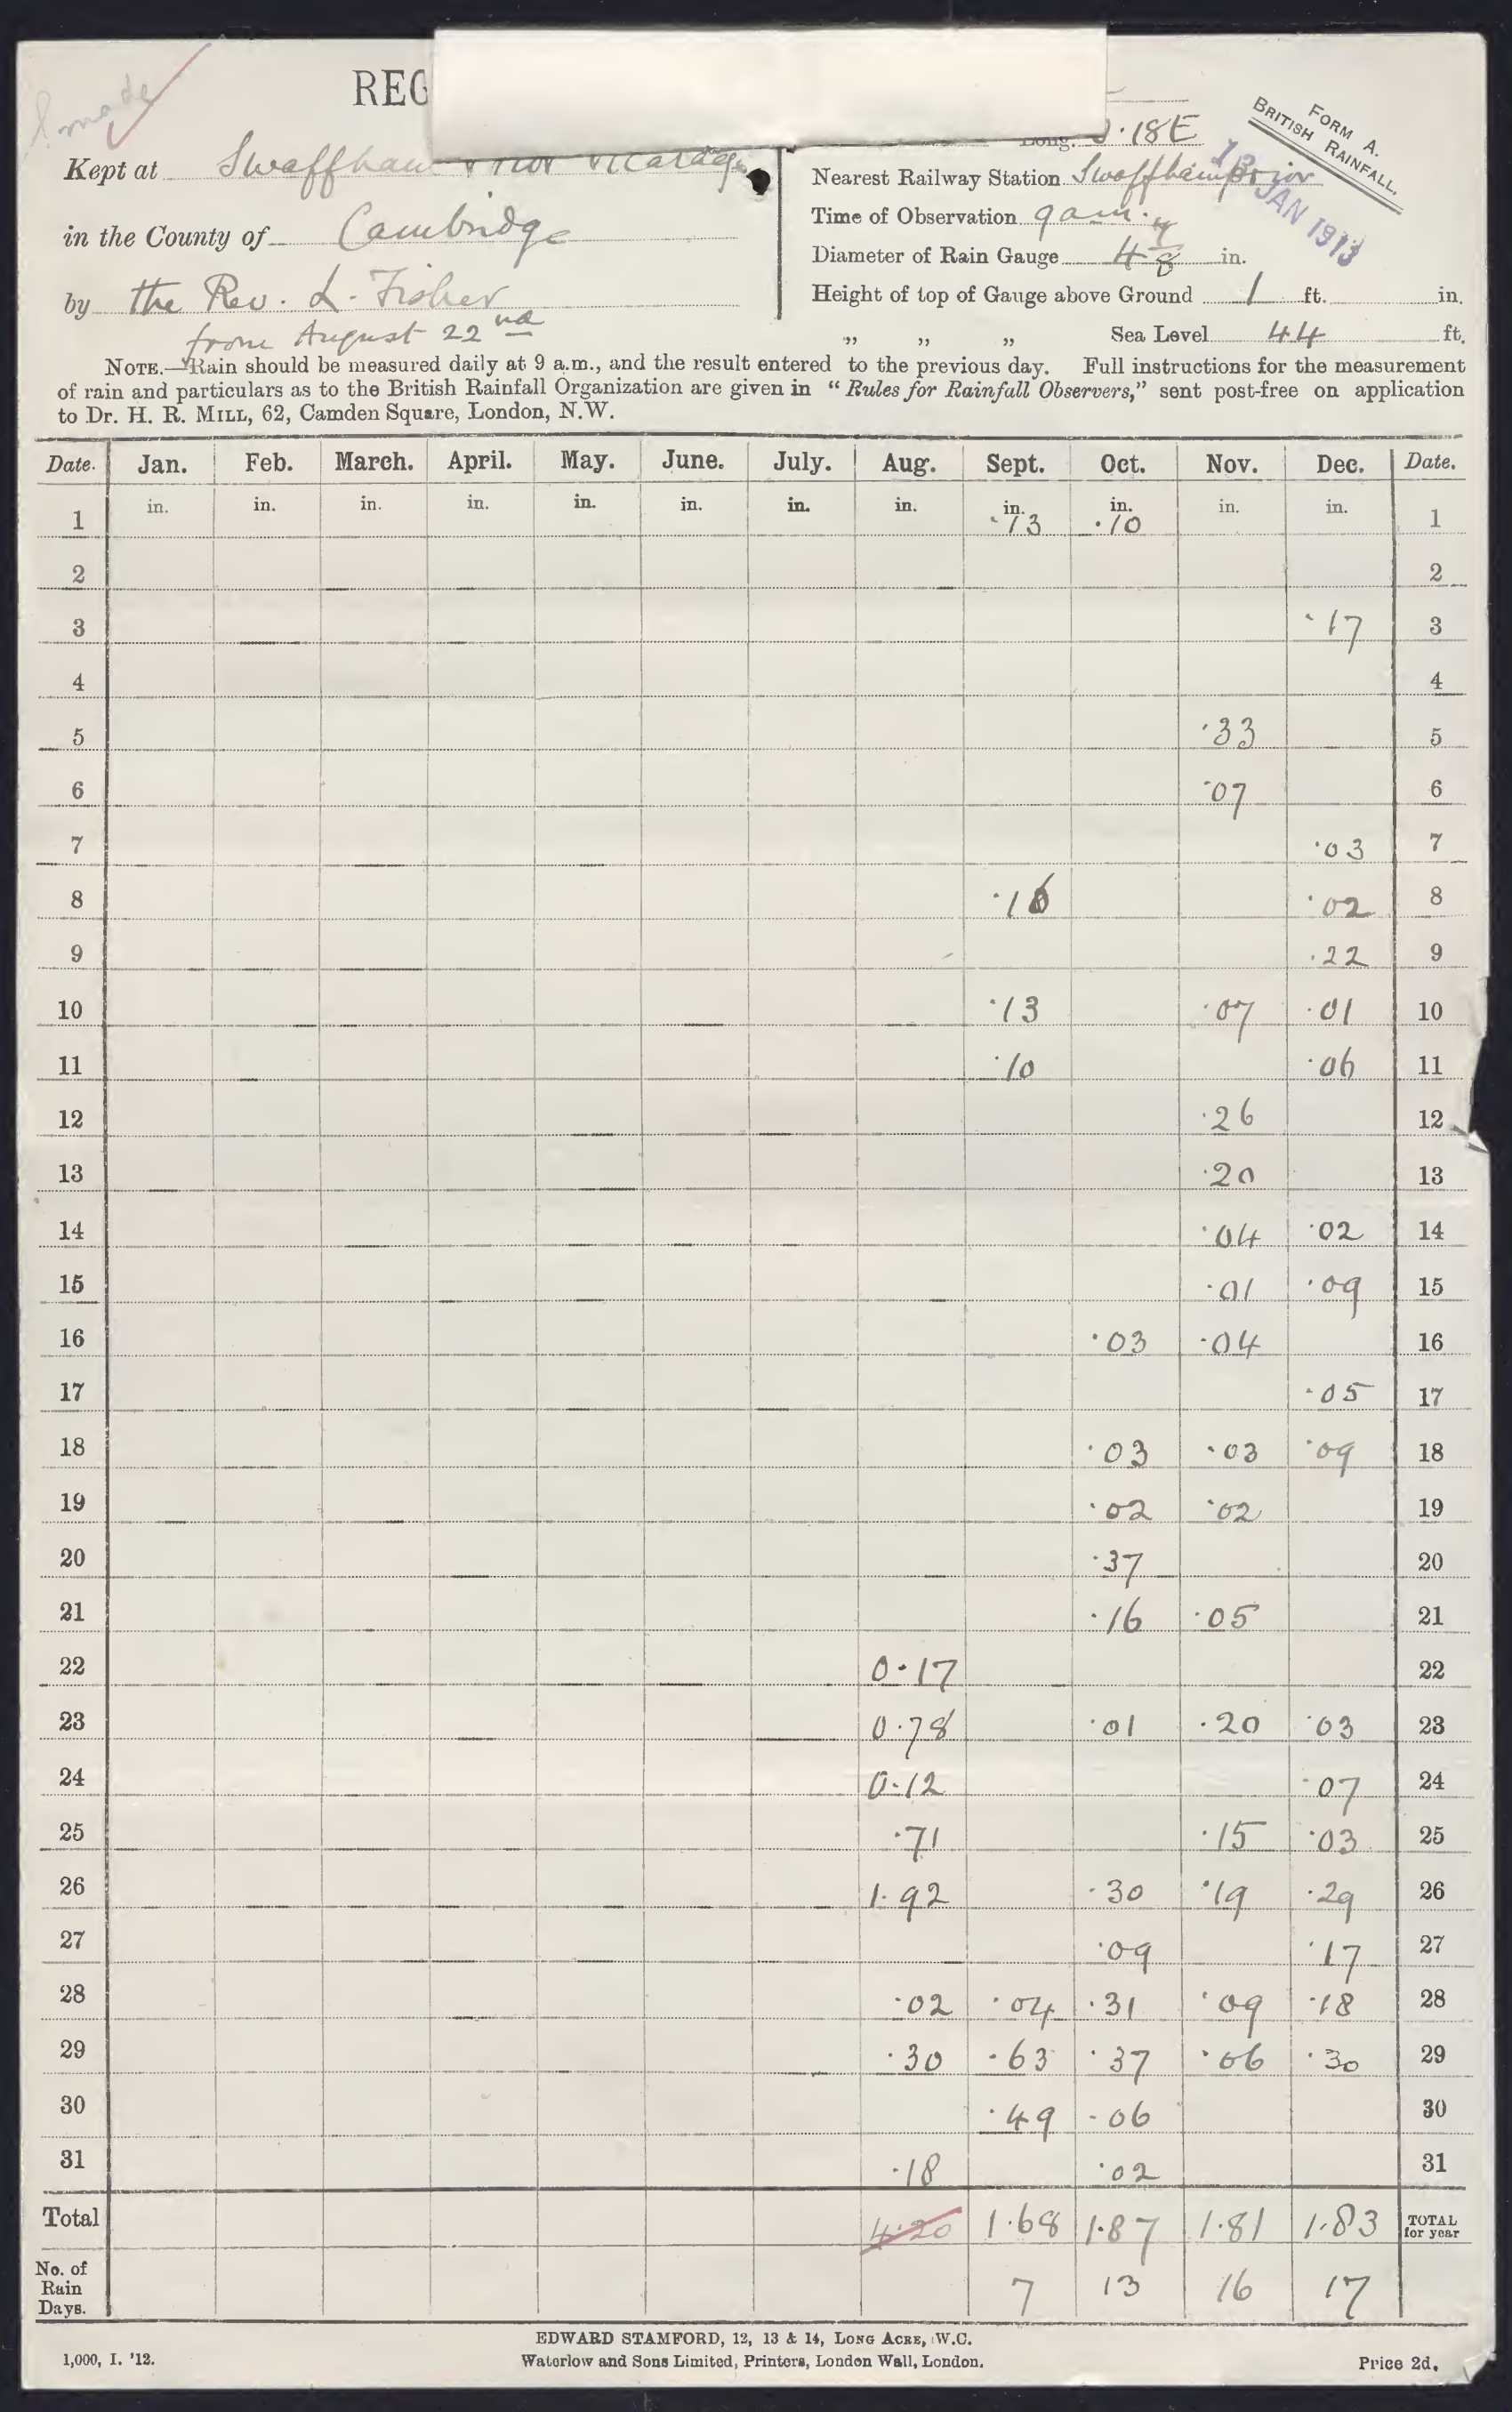 REG
FORM A.
BRITISH RAINFALL.
Long. 0·18E
Kept at Swaffham Prior Vicarage
Nearest Railway Station Swaffham Prior
JAN 1913
in the County of Cambridge
Time of Observation 9 am.
Diameter of Rain Gauge in.
by the Rev. L. Fisher
Height of top of Gauge above Ground 1 ft. in.
from August 22nd
„ „ „ Sea Level 44 ft.
NOTE.—Rain should be measured daily at 9 a.m., and the result entered to the previous day. Full instructions for the measurement
of rain and particulars as to the British Rainfall Organization are given in “Rules for Rainfall Observers,” sent post-free on application
to Dr. H. R. MILL, 62, Camden Square, London, N.W.
Date. Jan. Feb. March. April. May. June. July. Aug. Sept. Oct. Nov. Dec. Date.
in. in. in. in. in. in. in. in. in. in. in. in.
1 ·13 ·10 1
2 2
3 ·17 3
4 4
5 ·33 5
6 ·07 6
7 ·03 7
8 ·16 ·02 8
9 ·22 9
10 ·13 ·07 ·01 10
11 ·10 ·06 11
12 ·26 12
13 ·20 13
14 ·04 ·02 14
15 ·01 ·09 15
16 ·03 ·04 16
17 ·05 17
18 ·03 ·03 ·09 18
19 ·02 ·02 19
20 ·37 20
21 ·16 ·05 21
22 0·17 22
23 0·78 ·01 ·20 ·03 23
24 0·12 ·07 24
25 ·71 ·15 ·03 25
26 1·92 ·30 ·19 ·29 26
27 ·09 ·17 27
28 ·02 ·04 ·31 ·09 ·18 28
29 ·30 ·63 ·37 ·06 ·30 29
30 ·49 ·06 30
31 ·18 ·02 31
Total 4·20 1·68 1·87 1·81 1·83 TOTAL for year
No. of Rain Days. 7 13 16 17
EDWARD STAMFORD, 12, 13 & 14, LONG ACRE, W.C.
1,000, I. '12. Waterlow and Sons Limited, Printers, London Wall, London. Price 2d.